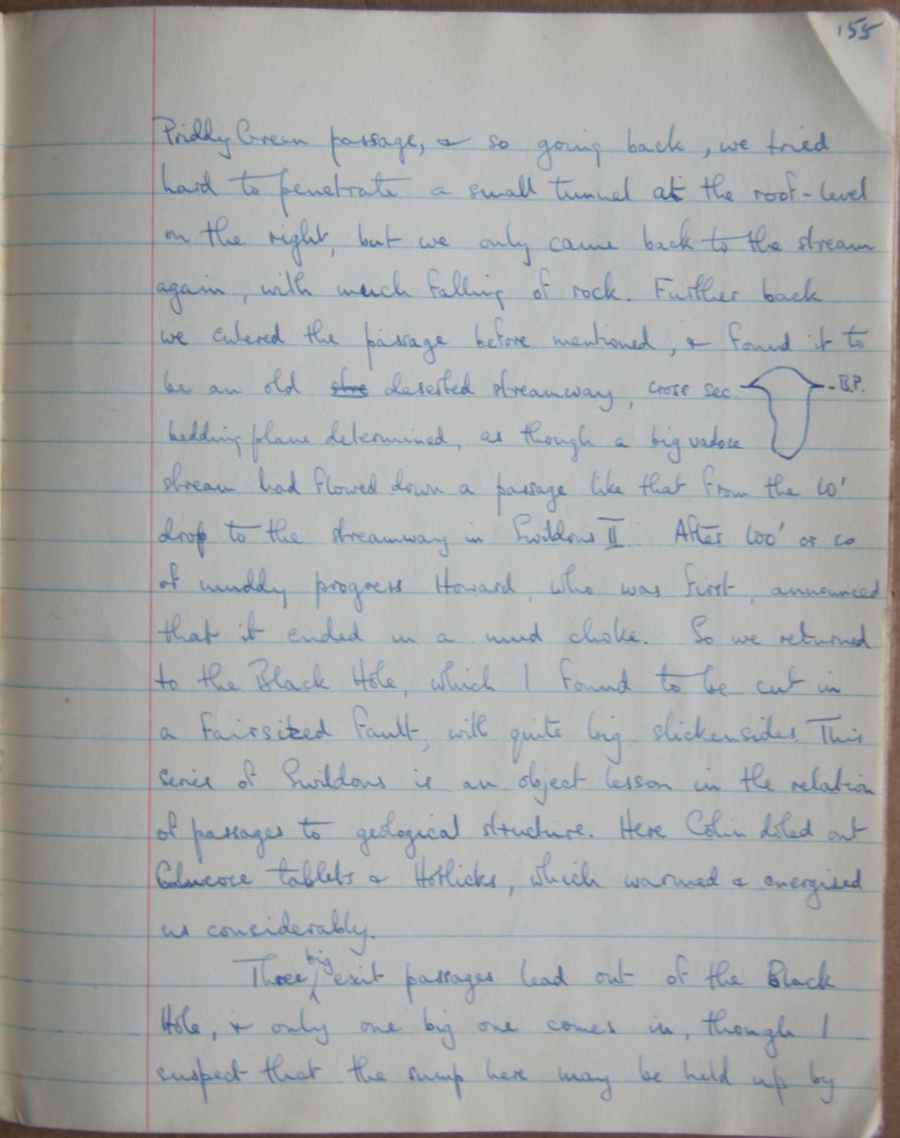 155
Priddy Green passage, & so going back, we tried
hard to penetrate a small tunnel at the roof-level
on the right, but we only came back to the stream
again, with much falling of rock. Further back
we entered the passage before mentioned, & found it to
be an old stre deserted streamway, cross sec -B.P.
bedding plane determined, as though a big vadose
stream had flowed down a passage like that from the 10'
drop to the streamway in Swildons II. After 100' or so
of muddy progress Howard, who was first, announced
that it ended in a mud choke. So we returned
to the Black Hole, which I found to be cut in
a fairsized fault, with quite big slickensides. This
series of Swildons is an object lesson in the relation
of passages to geological structure. Here Colin doled out
Glucose tablets & Horlicks, which warmed & energised
us considerably.
Three big exit passages lead out of the Black
Hole, & only one big one comes in, though I
suspect that the sump here may be held up by